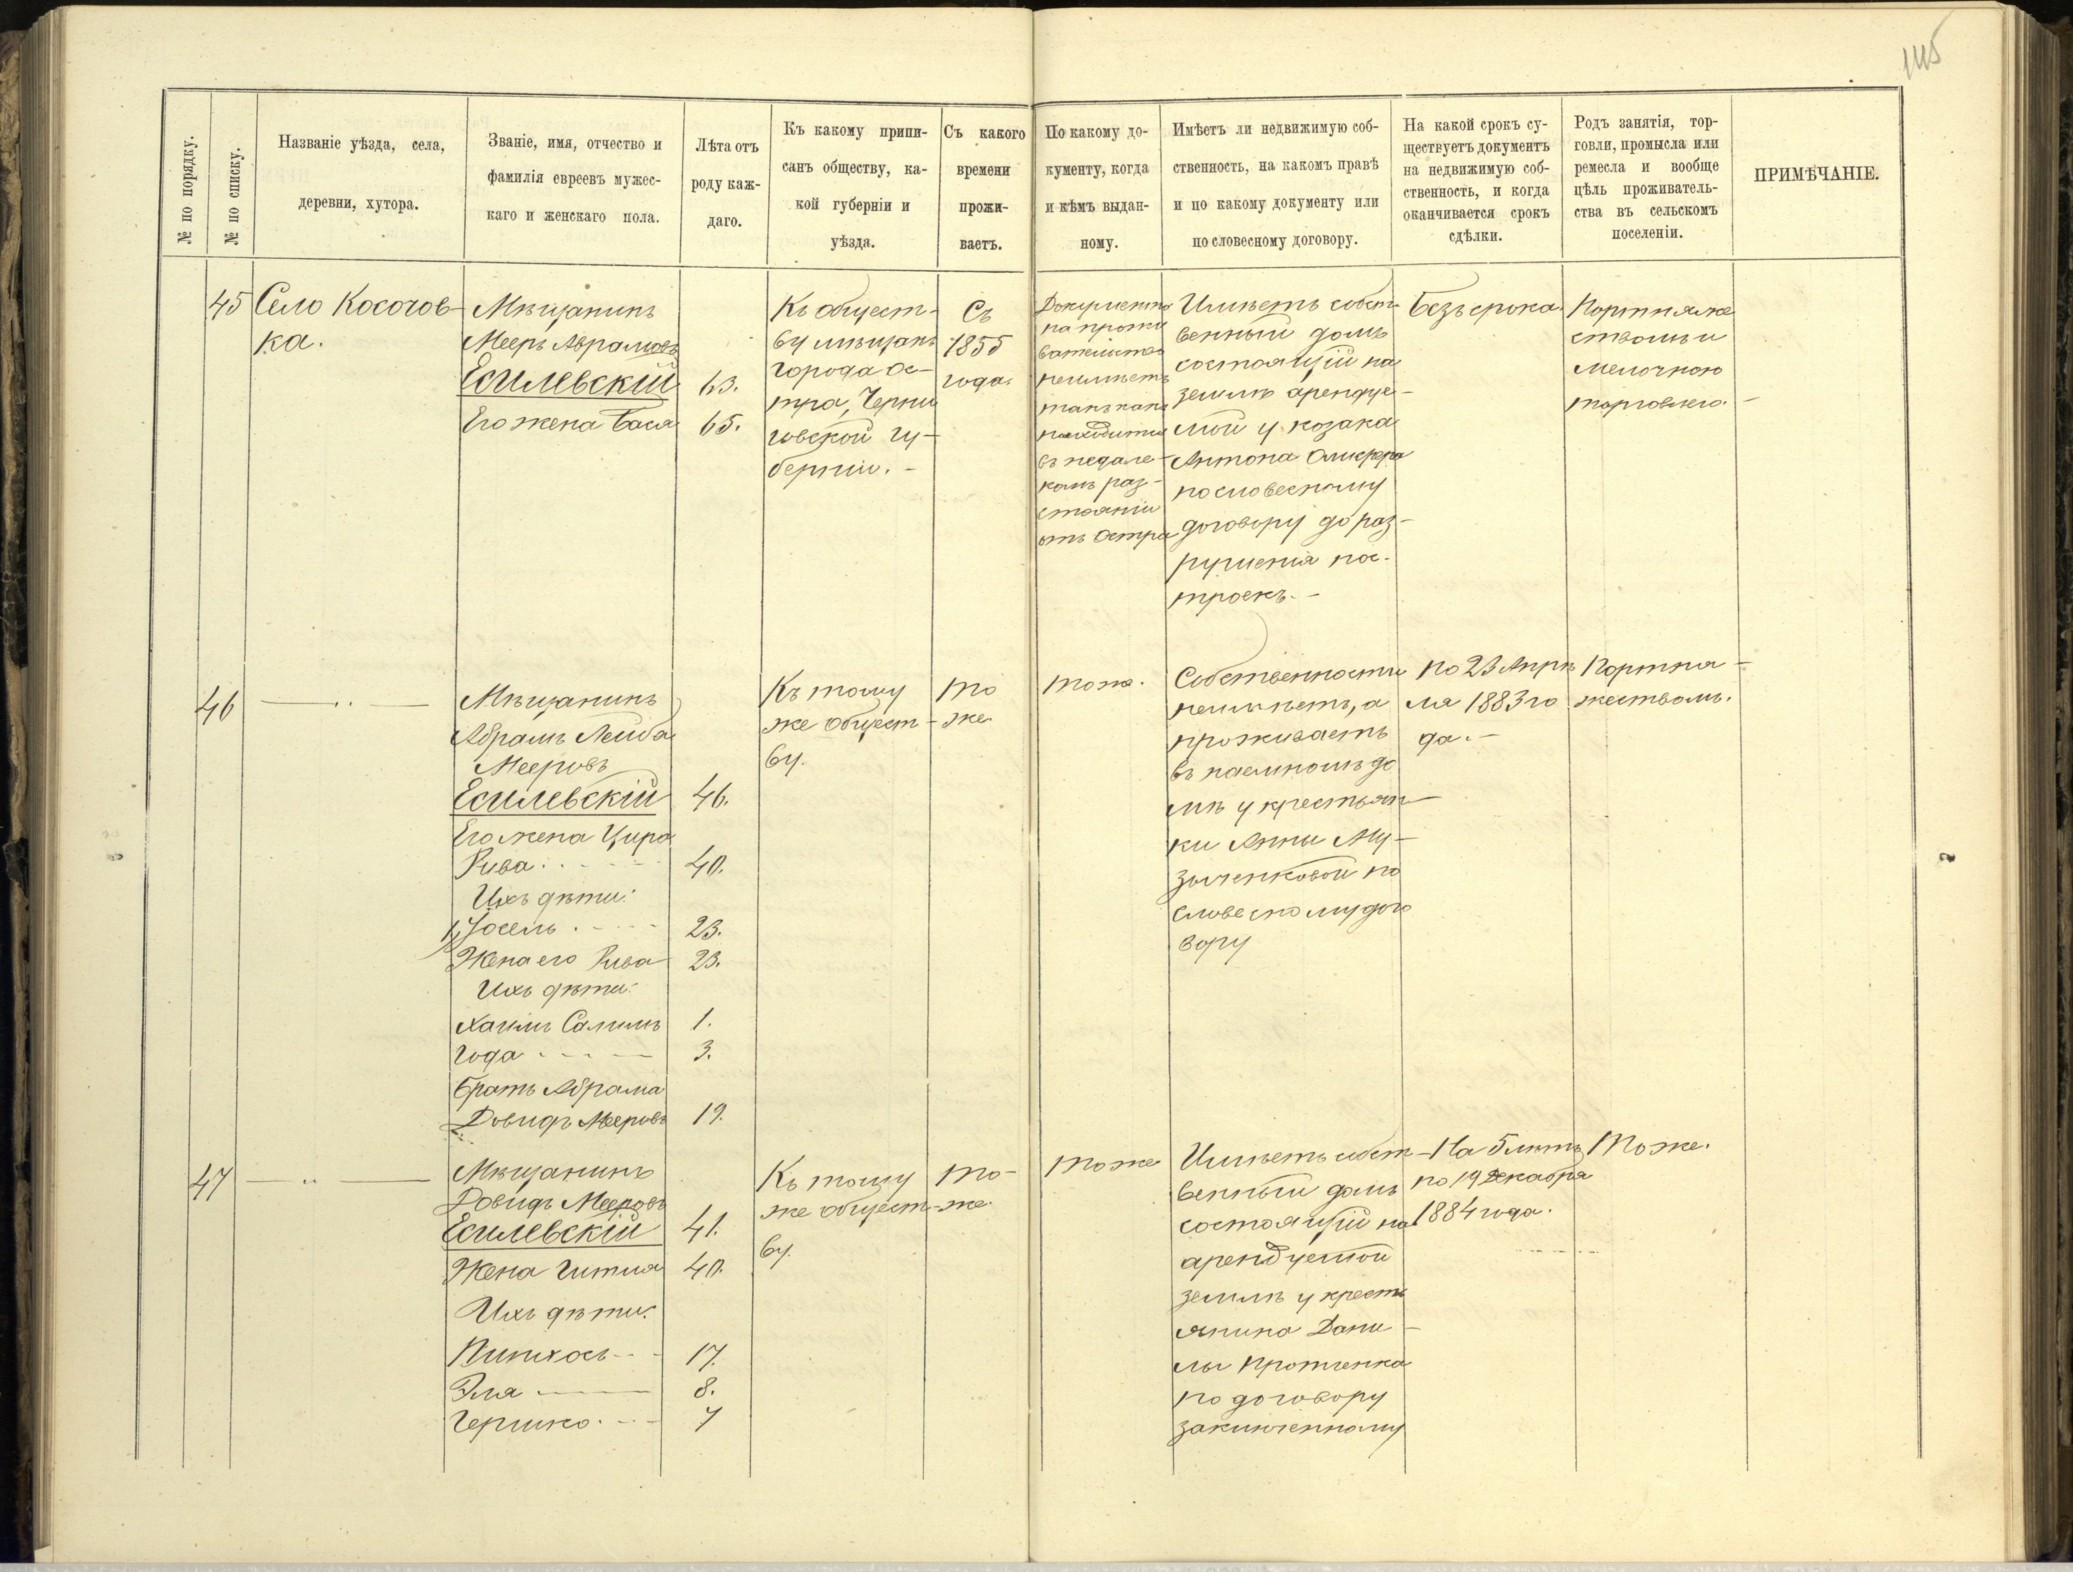 115
№ по порядку.
№ по списку.
Названіе уѣзда, села,
деревни, хутора.
Званіе, имя, отчество и
фамилія евреевъ мужес-
каго и женскаго пола.
Лѣта отъ
роду каж-
даго.
Къ какому припи-
санъ обществу, ка-
кой губерніи и
уѣзда.
Съ какого
времени
прожи-
ваетъ.
По какому до-
кументу, когда
и кѣмъ выдан-
ному.
Имѣетъ ли недвижимую соб-
ственность, на какомъ правѣ
и по какому документу или
по словесному договору.
На какой срокъ су-
ществуетъ документъ
на недвижимую соб-
ственность, и когда
оканчивается срокъ
сдѣлки.
Родъ занятія, тор-
говли, промысла или
ремесла и вообще
цѣль проживатель-
ства въ сельскомъ
поселеніи.
ПРИМѢЧАНІЕ.
45
Село Косачов-
ка.
Мѣщанинъ
Мееръ Аврамовъ
Есилевскій
Его жена Бася
63.
65.
Къ общест-
ву мѣщанъ
города Ос-
тра, Черни
говской гу-
берніи. -
Съ
1855
года.
Документа
на прожи
вательство
неимѣетъ
такъ какъ
находится
въ недале-
комъ раз-
стояніи
отъ Остра
Имѣетъ собст-
венный домъ
состоящій на
землѣ арендуе-
мой у козака
Антона
по словесному
договору до раз-
рушенія пос-
троекъ. -
Безъ срока.
Портняже
ствомъ и
мелочною
торговлею. -
46
Мѣщанинъ
Абрамъ Лейба
Мееровъ
Есилевскій
Его жена Цира
Рива
Ихъ дѣти:
1, Іосель
Жена его Рива
Ихъ дѣти:
Хаимъ
Года
Братъ Абрама
Довидъ Мееровъ
46.
40.
23.
23.
1.
3.
19.
Къ тому
же общест-
ву.
То
же.
Тоже.
Собственности
неимѣетъ, а
проживаетъ
въ наемномъ до
мѣ у крестьян-
ки Анны Му-
зыченковой по
словесному дого
вору
По 23 Апрѣ
ля 1883 го
да. -
Портня-
жествомъ.
47
Мѣщанинъ
Довидъ Мееровъ
Есилевскій
Жена Гитля
Ихъ дѣти:
Пинхосъ
Эля
Гершко
41.
40.
17.
8.
7
Къ тому
же общест-
ву.
То-
же.
Тоже
Имѣетъ собст-
венный домъ
состоящій на
арендуемой
землѣ у кресть
янина Дани-
лы Протченка
по договору
заключенному
На 5 лѣтъ
по 19 Декабря
1884 года.
Тоже.